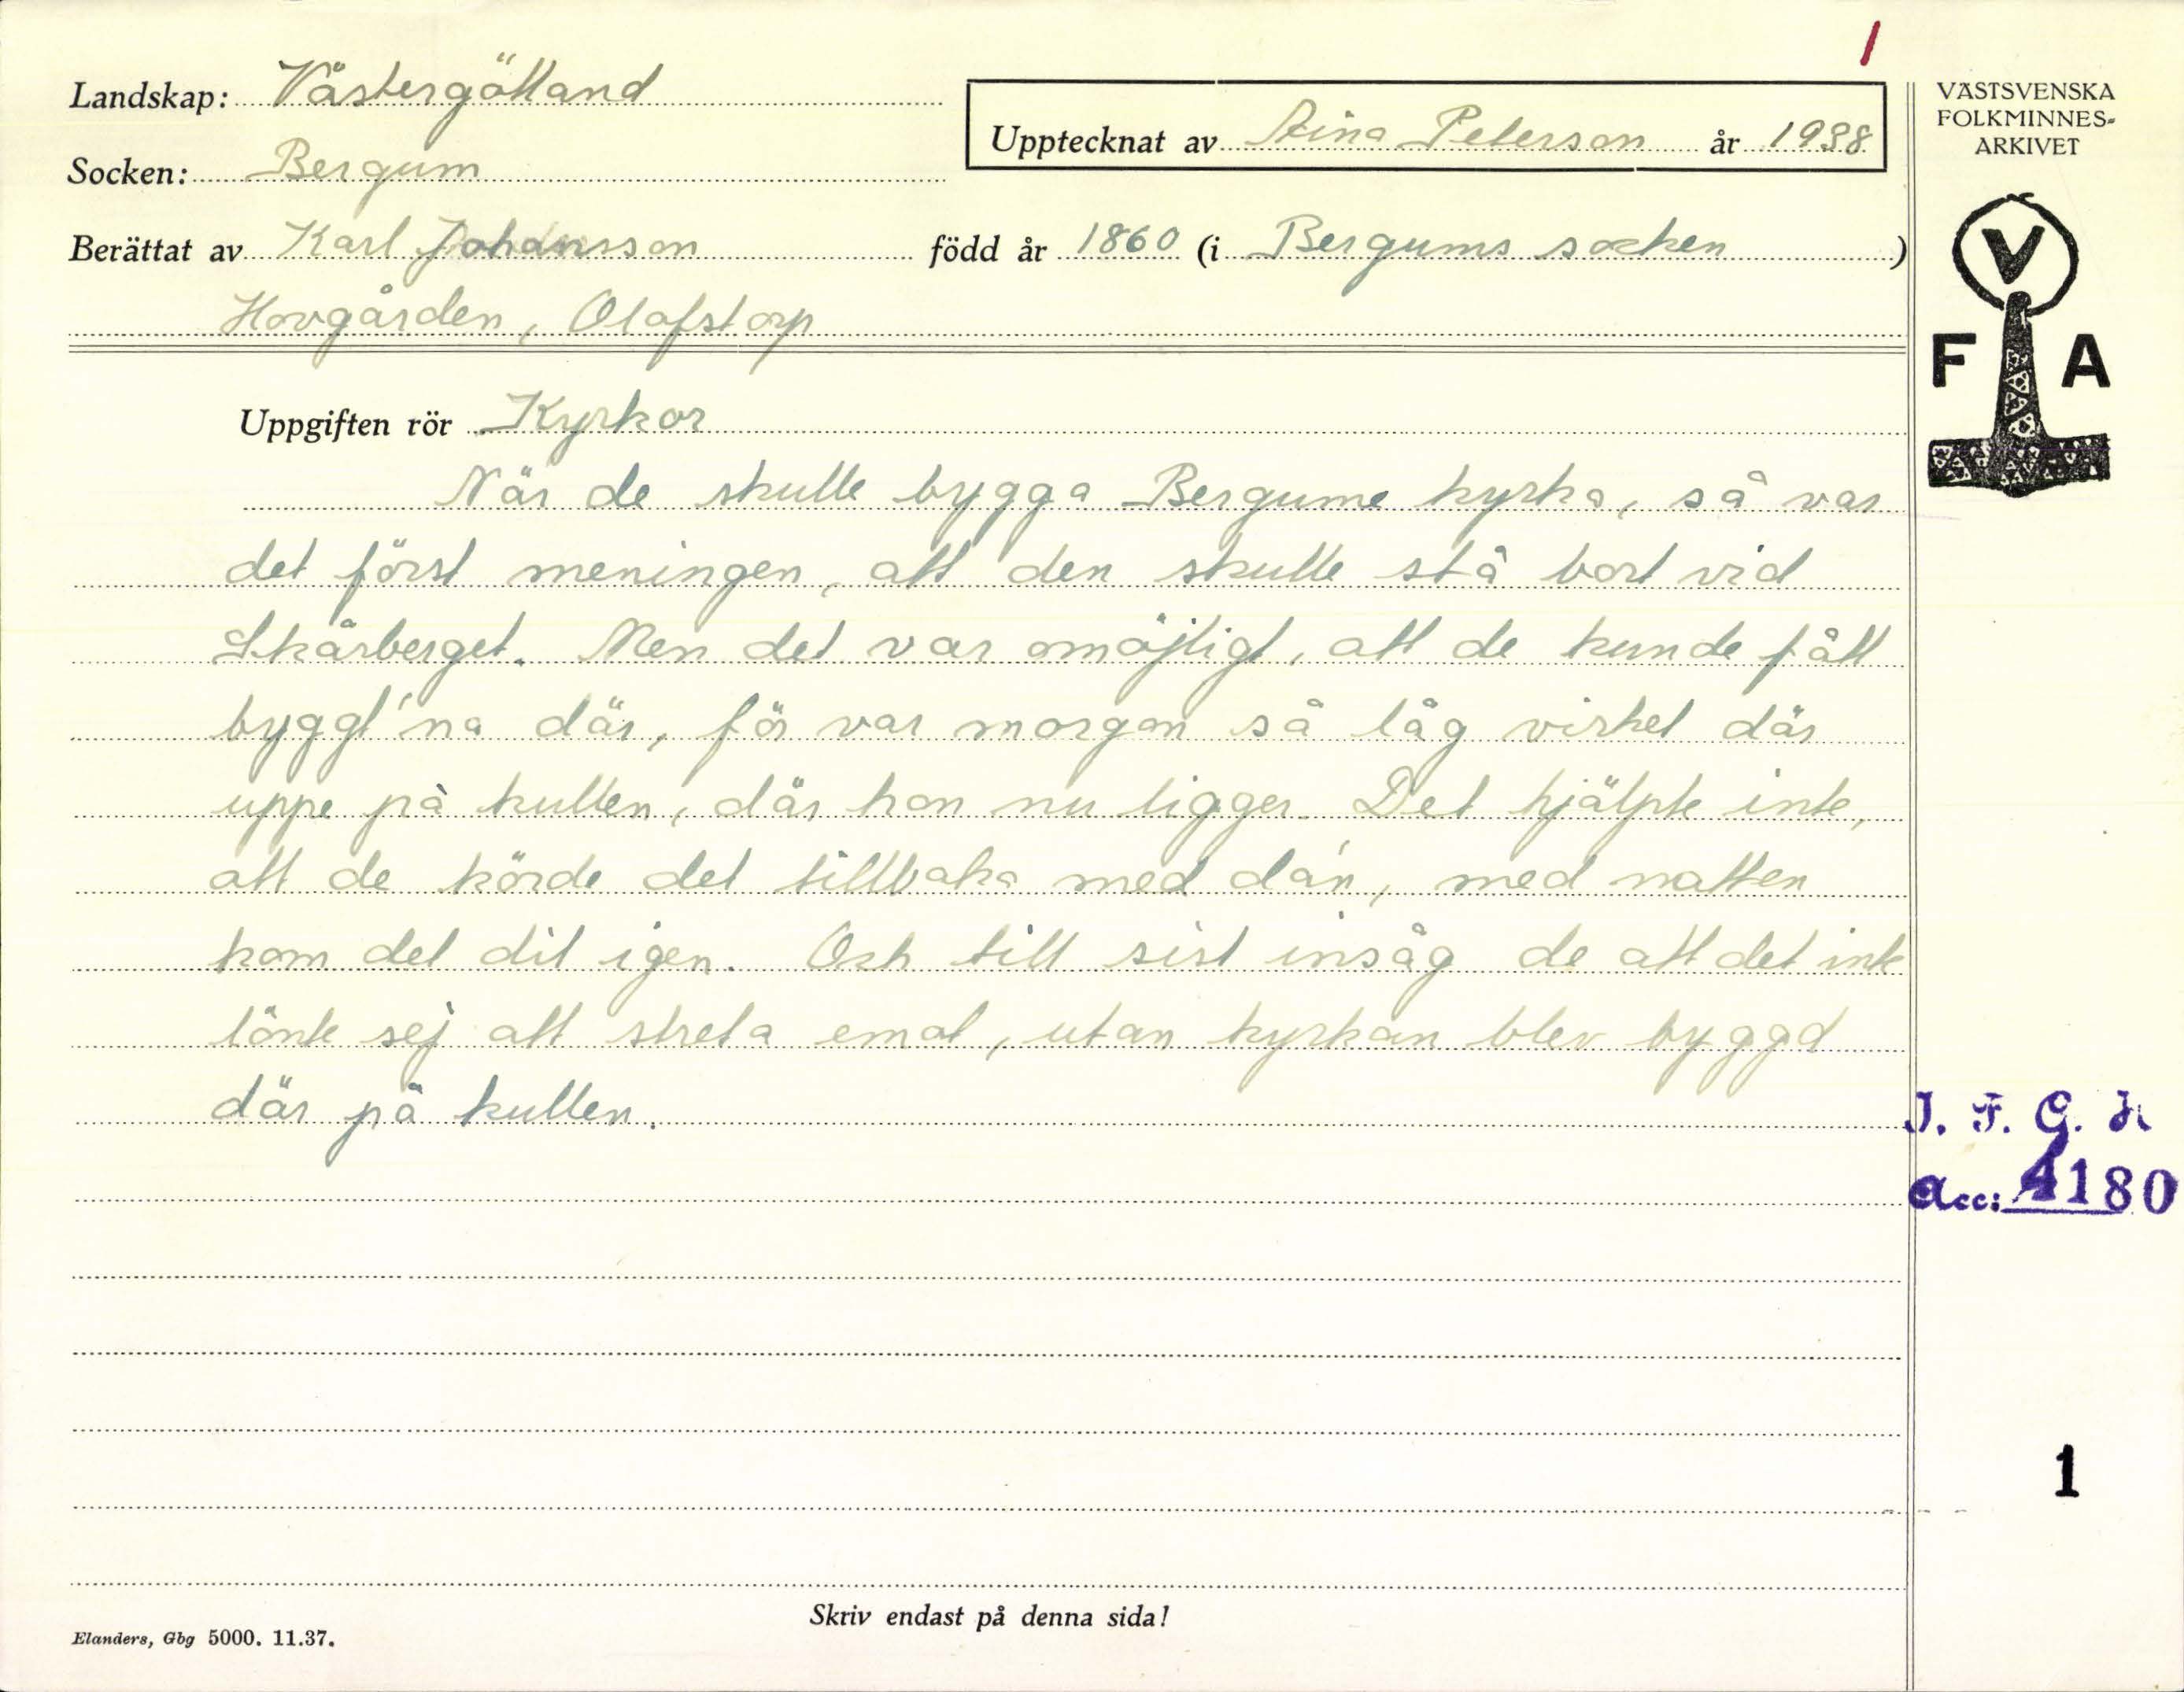 1
Landskap: Västergötland
Upptecknat av Stina Peterson år 1938
VÄSTSVENSKA
FOLKMINNES-
ARKIVET
Socken: Bergum
Berättat av Karl Johansson född år 1860 (i Bergums socken)
Hovgården, Olafstorp
V
F A
Uppgiften rör Kyrkor
När de skulle bygga Bergums kyrka, så var
det först meningen, att den skulle stå bort vid
Skårberget. Men det var omöjligt, att de kunde fått
byggt'na där, för var morgon så låg virket där
uppe på kullen, där hon nu ligger. Det hjälpte inte,
att de körde det tillbaka med da'n, med natten
kom det dit igen. Och till sist insåg de att det inte
lönte sej att streta emot, utan kyrkan blev byggd
där på kullen.
I. F. G. H
Acc: 4180
1
Skriv endast på denna sida!
Elanders, Gbg 5000. 11.37.